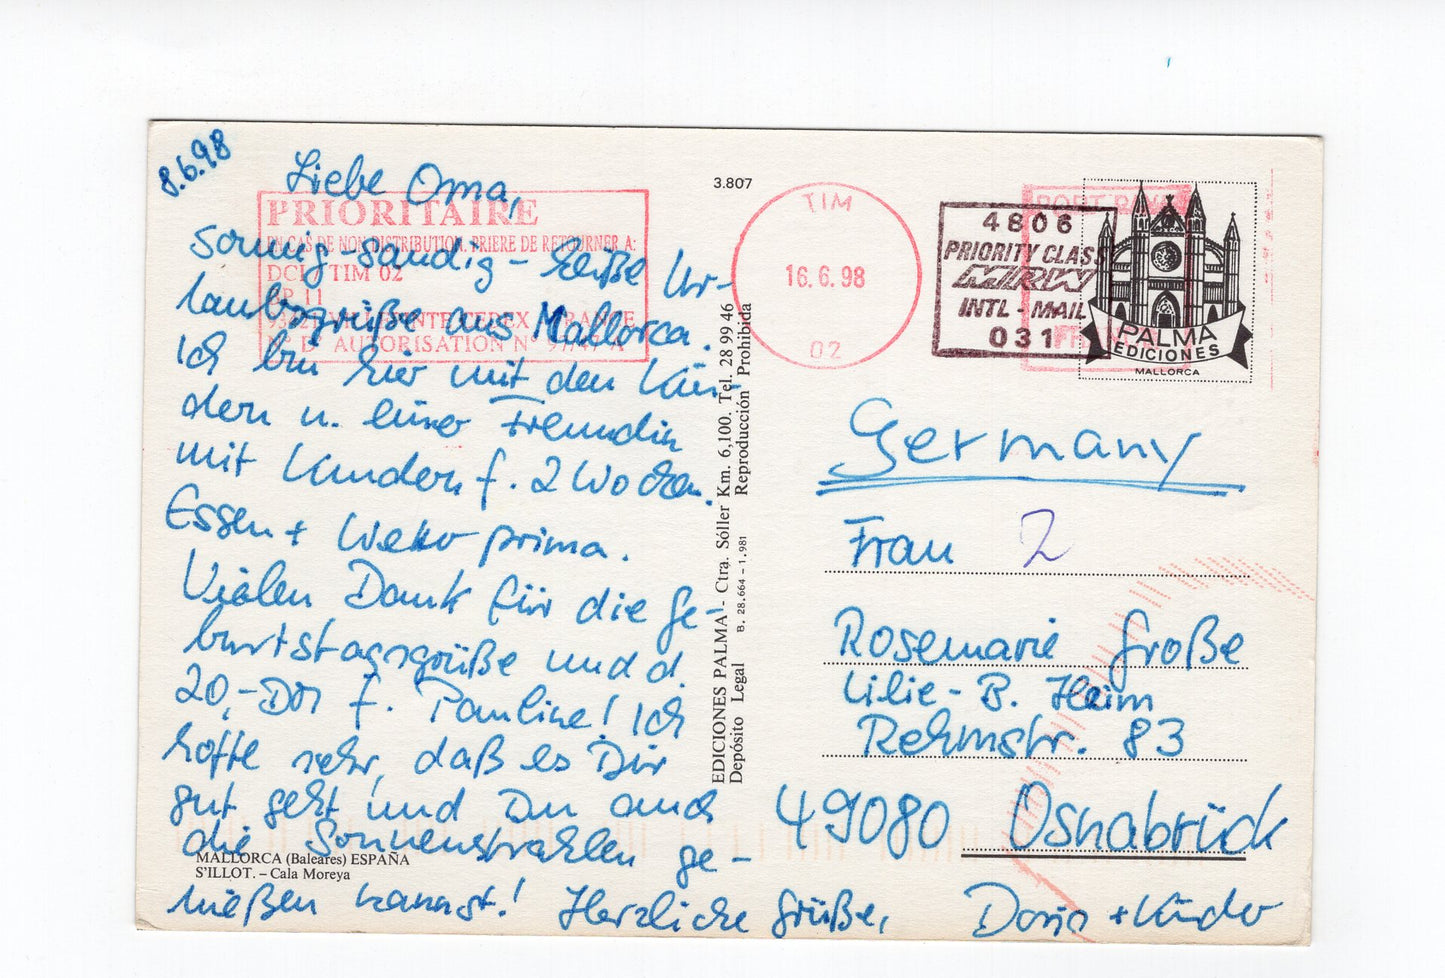 8.6.98
Liebe Oma,
sonnig-sandig-heiße Ur-
laubsgrüße aus Mallorca.
Ich bin hier mit den Kin-
dern u. einer Freundin
mit Kindern f. 2 Wochen.
Essen + Wetter prima.
Vielen Dank für die Ge-
burtstagsgrüße und d.
20,-DM f. Pauline! Ich
hoffe sehr, daß es Dir
gut geht und Du auch
die Sonnenstrahlen ge-
nießen kannst! Herzliche Grüße,
+ Kinder
PRIORITAIRE
EN CAS DE NON DISTRIBUTION, PRIERE DE RETOURNER A:
DCI / TIM 02
BP 11
FRANCE
N° D' AUTORISATION N°
MALLORCA (Baleares) ESPAÑA
S'ILLOT. – Cala Moreya
3.807
EDICIONES PALMA - Ctra. Sóller Km. 6,100. Tel. 28 99 46
Depósito Legal B. 28.664 – 1.981 Reproducción Prohibida
TIM
16.6.98
02
4806
PRIORITY CLASS
MRW
INTL - MAIL
031
PORT PAYE
PALMA
EDICIONES
MALLORCA
Germany
Frau
Rosemarie Große
Lilie-B. Heim
Rehmstr. 83
49080 Osnabrück